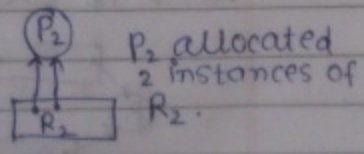 P2
P2 allocated
2 instances of
R2.
R2